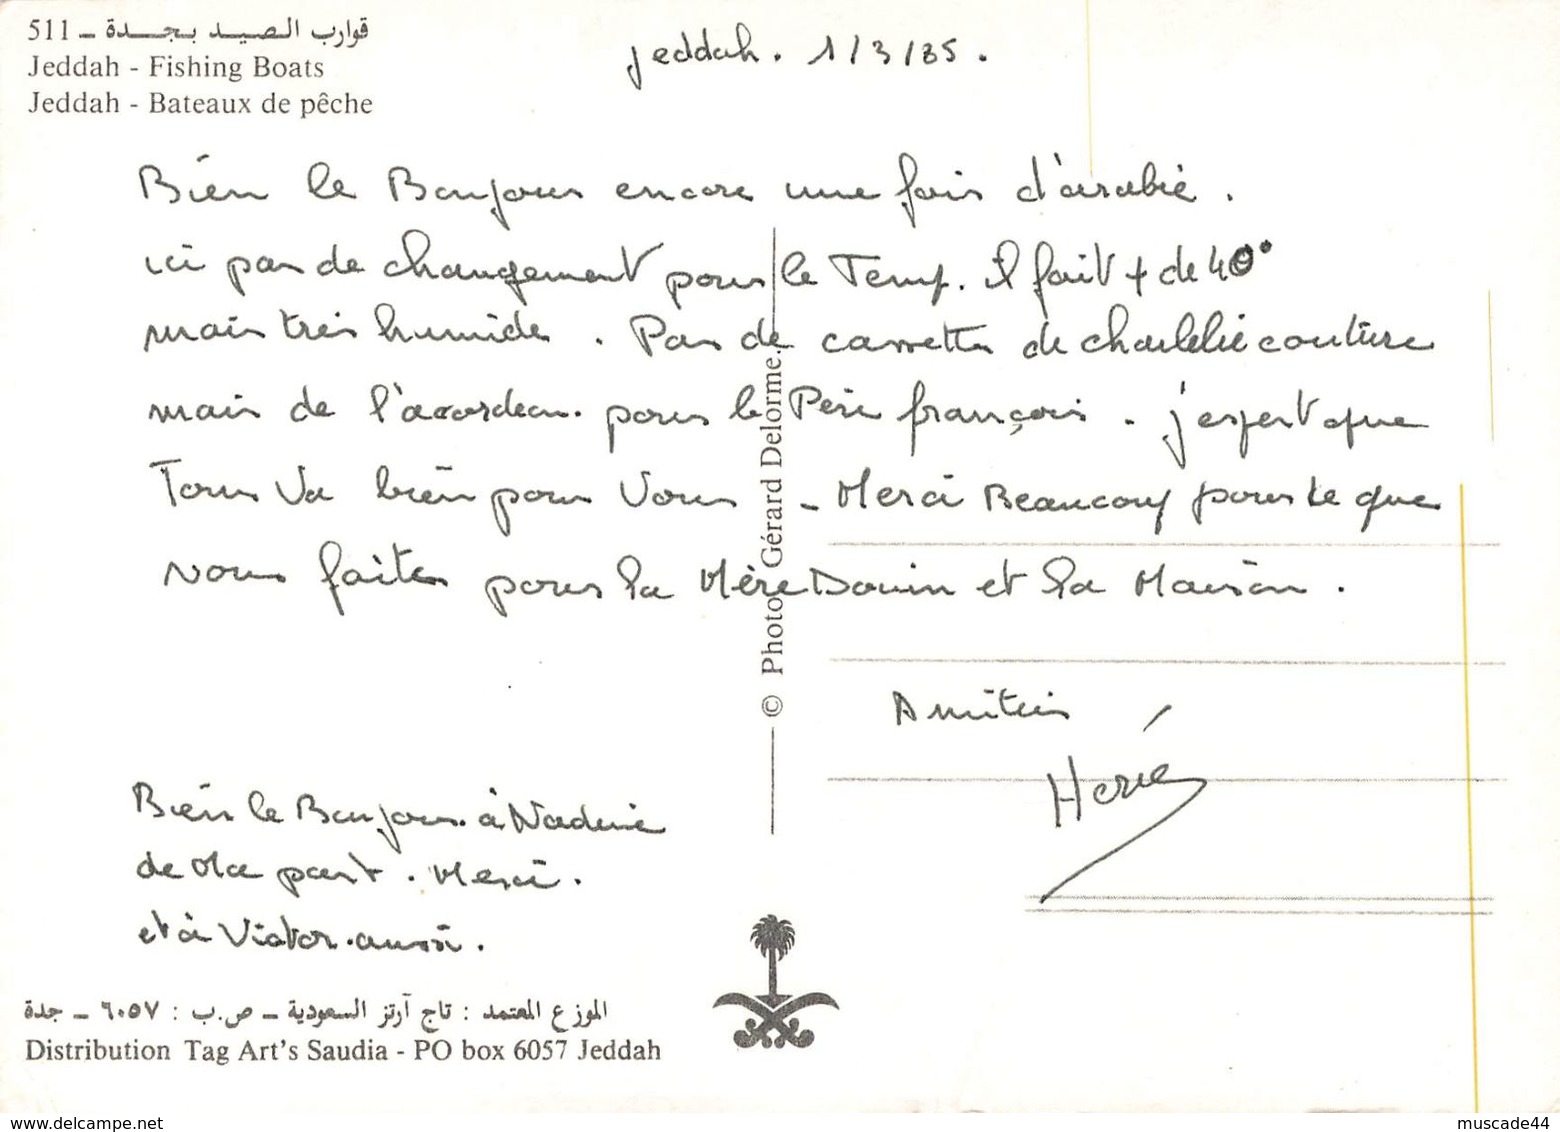 511 ـ قوارب الصيد بجدة
Jeddah - Fishing Boats
Jeddah - Bateaux de pêche
Jeddah. 1/3/85.
Bien le Bonjour encore une fois d'arabie.
ici pas de changement pour le Temp. il fait + de 40°
mais très humide. Pas de cassette de charlélie couture
mais de l'acordeon. pour le Père françois. j'espert que
Tous Va bien pour Vous - Merci Beaucoup pour ce que
vous faites pour la Mère Douin et la Maison.
Amitiés
Hervé
Bien le Bonjour à Nadine
de Ma part. Merci.
et à Viator. aussi.
© Photo Gérard Delorme.
الموزع المعتمد : تاج آرتز السعودية ـ ص.ب : ٦٠٥٧ ـ جدة
Distribution Tag Art's Saudia - PO box 6057 Jeddah
muscade44